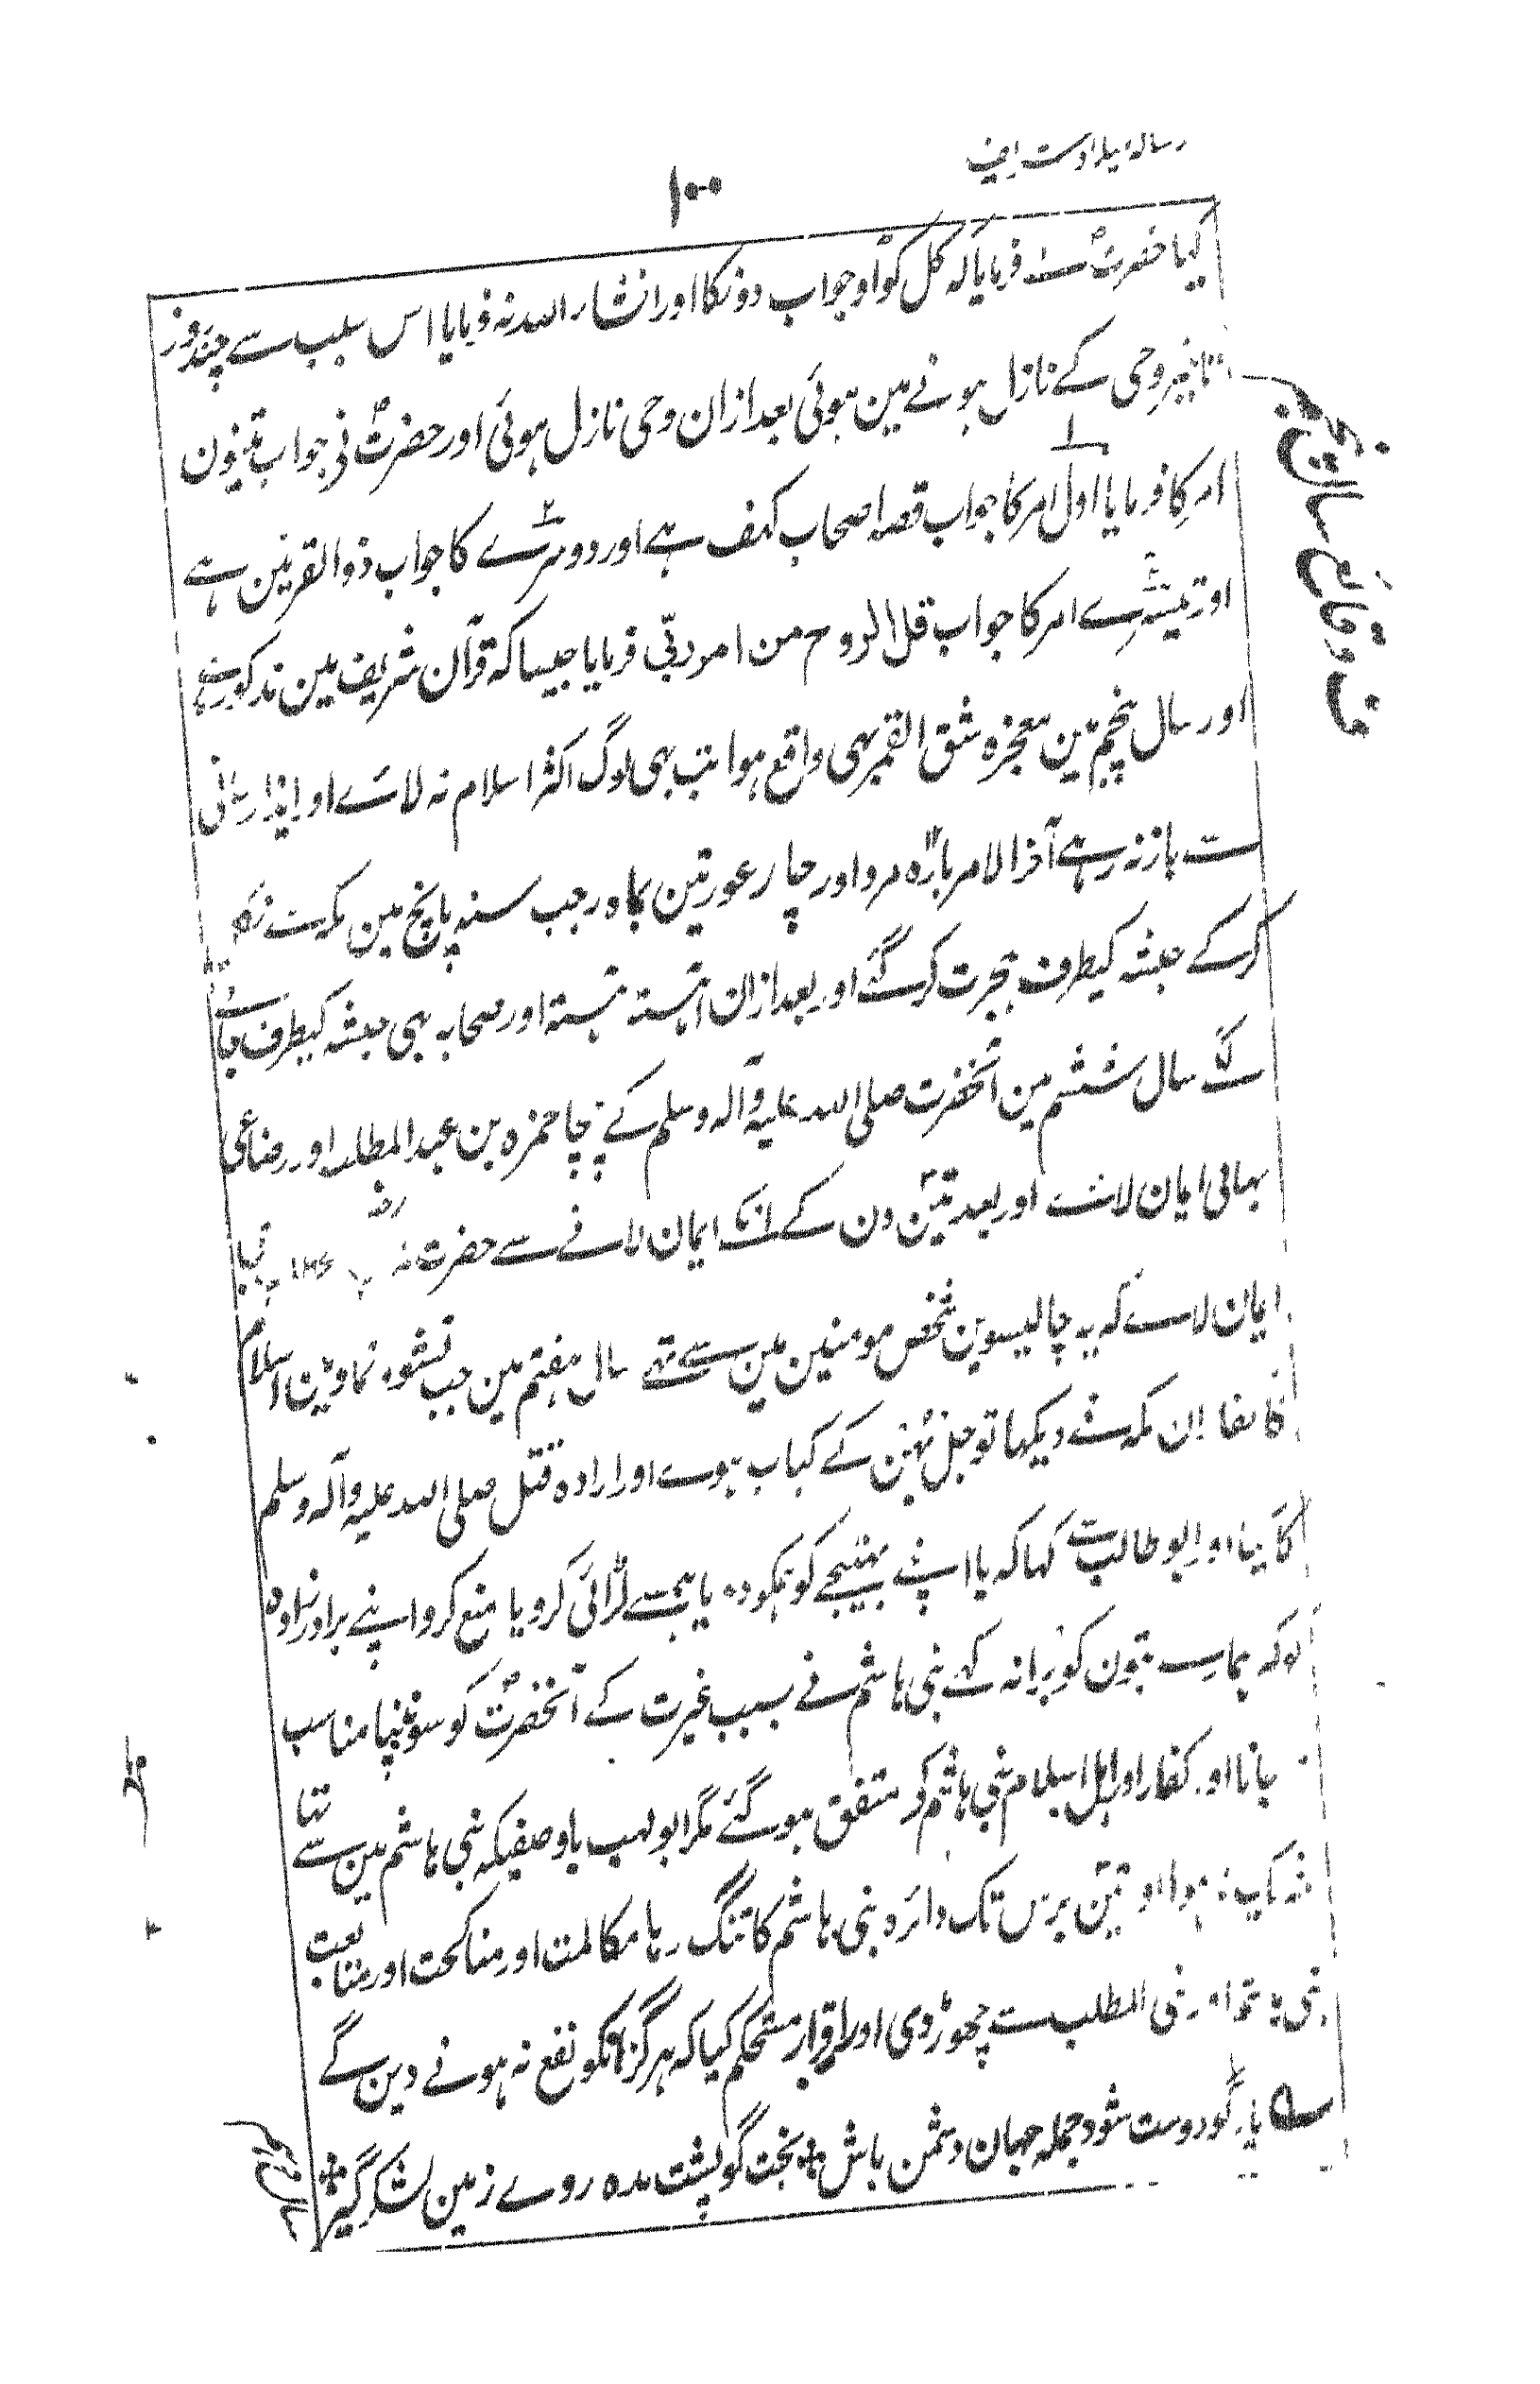 رسالہ میلاد شریف
۱۰۰
کیا حضرتؐ نے فرمایا کہ کل کو اوجواب دونگا اور انشار اللہ نہ فرمایا اس سبب سے چند روز
تاخیر وحی کے نازل ہونے مین ہوئی بعد ازان وحی نازل ہوئی اور حضرتؐ نی جواب تینون
امر کا فرمایا اول امر کا جواب قصہ اصحاب کہف ہے اور دوسرے کا جواب ذوالقرنین ہے
اور تیسرے امر کا جواب قل الروح من امر ربی فرمایا جیسا کہ قرآن شریف مین مذکور ہے
اور سال پنجم مین معجزہ شق القمر بھی واقع ہوا تب بھی لوگ اکثر اسلام نہ لائے اور ایذا رسانی
سے باز نہ رہے آخر الامر بارہ مرد اور چار عورتین بماہ رجب سنہ پانچ مین مکہ سے
کرکے حبشہ کیطرف ہجرت کر گئے اور بعد ازان آہستہ آہستہ اور صحابہ بھی حبشہ کیطرف جاتے
گئے سال ششم مین آنحضرت صلی اللہ علیہ وآلہ وسلم کے چچا حمزہ بن عبد المطلب اور رضاعی
بھائی ایمان لائے اور بعد تین دن کے انکے ایمان لانے سے حضرت
ایمان لائے کہ یہ چالیسوین شخص مومنین مین سے تھے سال ہفتم مین جب نشوونما دین اسلام
مخالفان مکہ نے دیکھا تو جل بہن کے کباب ہوے اور ارادہ قتل صلی اللہ علیہ وآلہ وسلم
کا کیا اور ابو طالب سے کہا کہ یا اپنے بھتیجے کو ہمکو دو یا ہمسے لڑائی کرو یا منع کرو اپنے برادرزادہ
کو کہ ہمارے بتون کو برا نہ کہے بنی ہاشم نے بسبب غیرت کے آنحضرتؐ کو سونپنا مناسب
نہ جانا اور کفار اور اہل اسلام بنی ہاشم کے متفق ہو گئے مگر ابو لہب باوصفیکہ بنی ہاشم مین سے تھا
شریک نہ ہوا اور تین برس تک دائرہ بنی ہاشم کا تنگ رہا مکالمت اور مناکحت اور متابعت
بنی ہاشم اور بنی المطلب سے چھوڑ دی اور اقرار مستحکم کیا کہ ہرگز انکو نفع نہ ہونے دین گے
؎ یار گو دوست شود جملہ جہان دشمن باش ؞ بخت گو پشت مدہ روے زمین لشکر گیر ؞